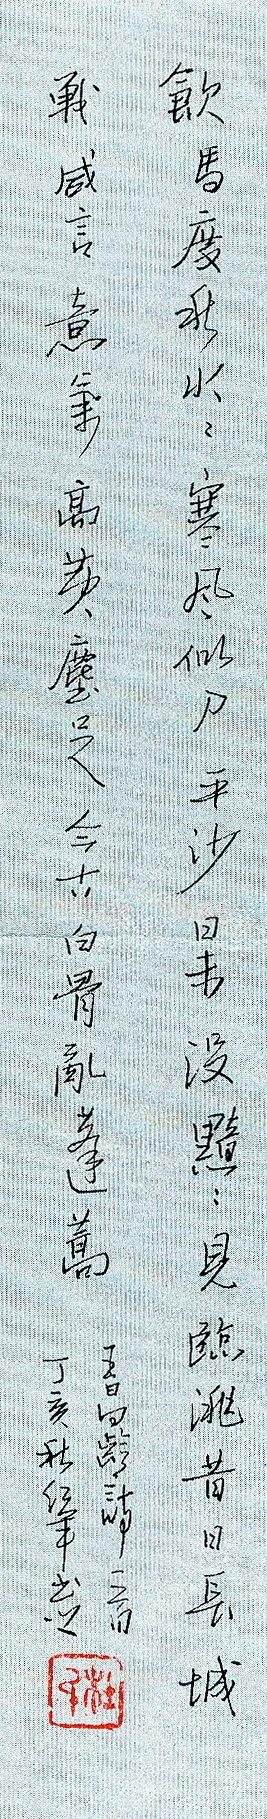 飲馬度秋水〻寒風似刀平沙日未沒黯〻見臨洮昔日長城
戰咸言意氣高黃塵足今古白骨亂蓬蒿
王昌齡詩一首
丁亥秋書